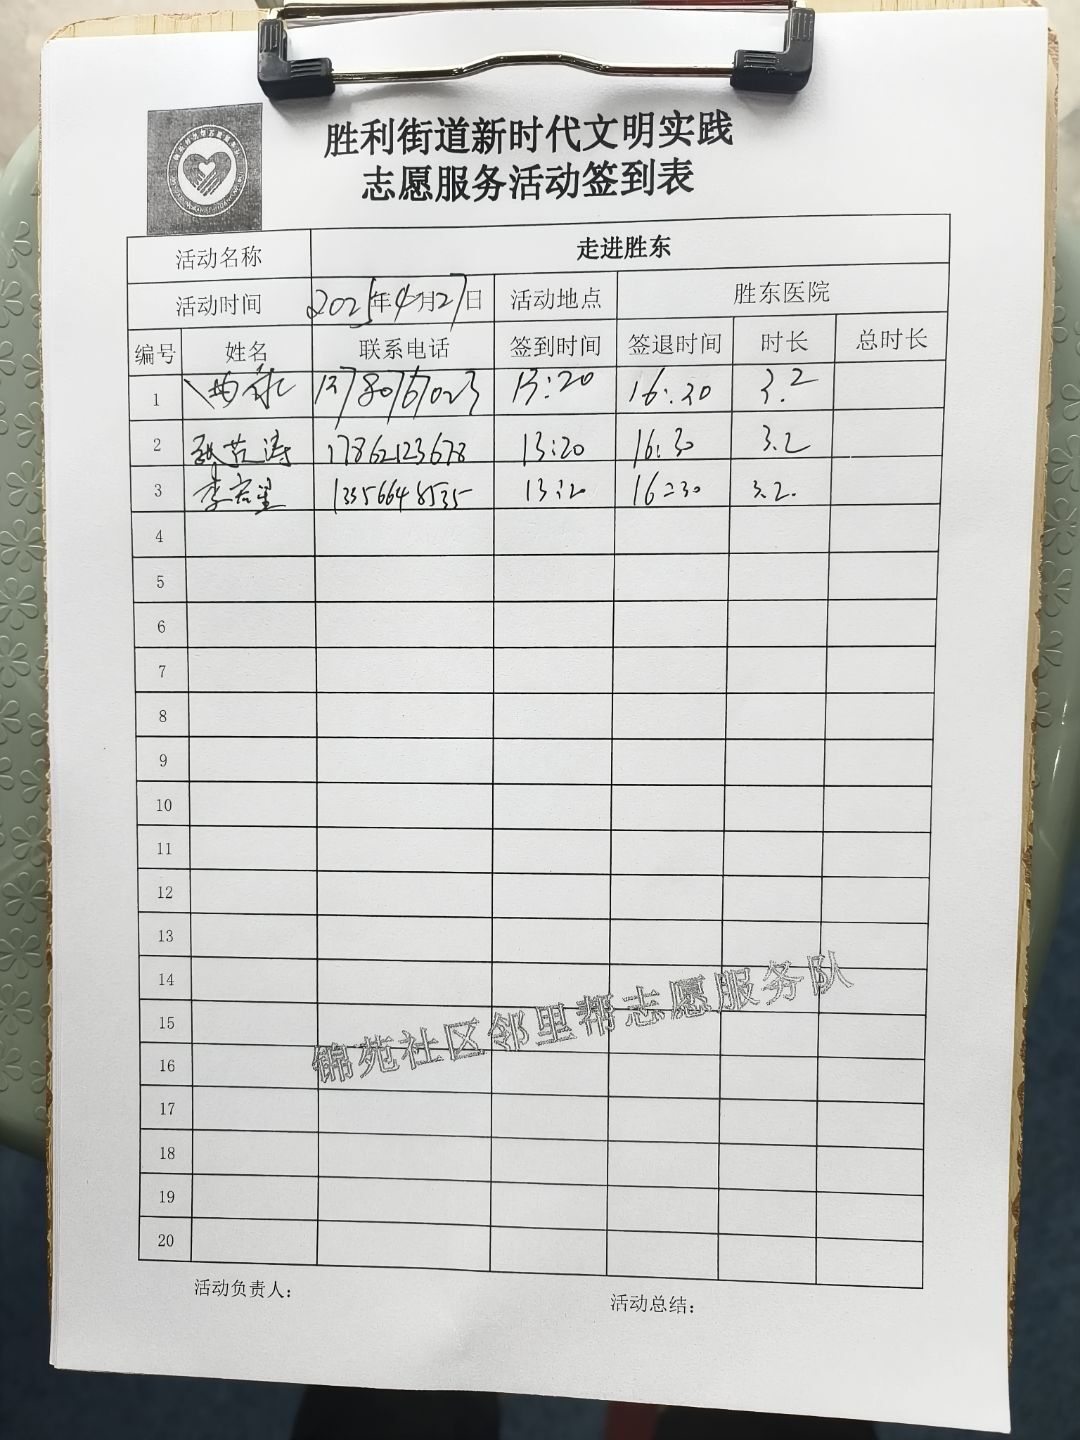 胜利街道新时代文明实践
志愿服务活动签到表
活动名称 走进胜东
活动时间 2025年4月27日 活动地点 胜东医院
编号 姓名 联系电话 签到时间 签退时间 时长 总时长
1 13780767023 13:20 16:30 3.2
2 17862123678 13:20 16:30 3.2
3 李 13356648535 13:20 16:30 3.2
4
5
6
7
8
9
10
11
12
13
14
15
16
17
18
19
20
锦苑社区邻里帮志愿服务队
活动负责人:
活动总结: